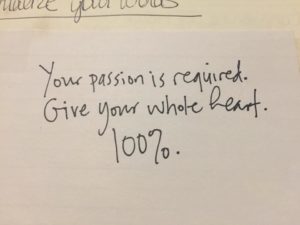 your words
Your passion is required.
Give your whole heart.
100%.